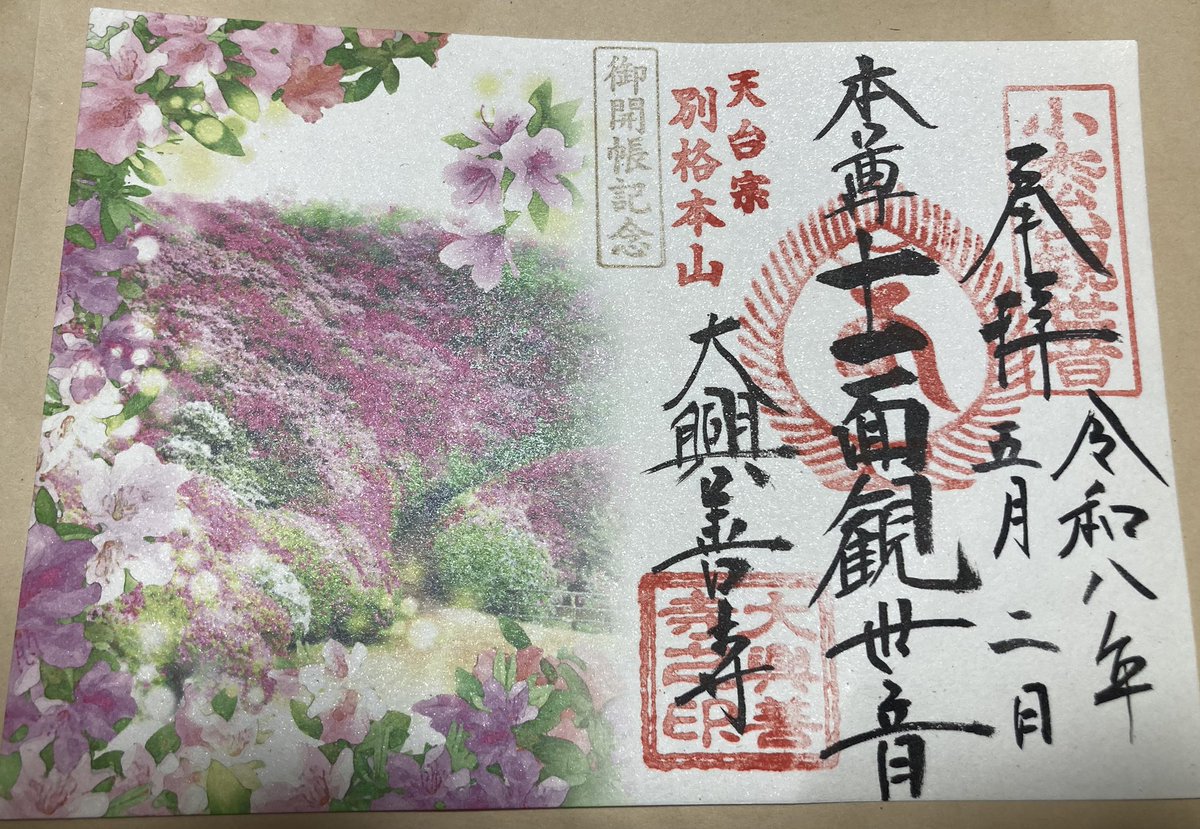 小松山観世音
奉拝
令和八年
五月二日
本尊十一面観世音
天台宗
別格本山
大興善寺
大興善
寺之印
御開帳記念